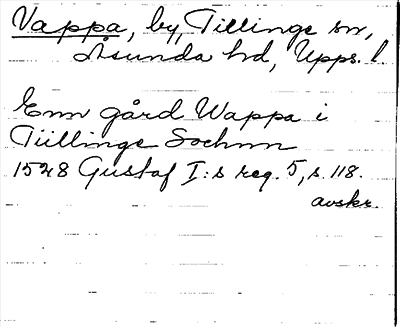 Vappa, by, Tillinge sn,
Åsunda hd, Upps. l.
Enn gård Wappa i
Tiillinge Sochnn
1528 Gustaf I:s reg. 5, s. 118.
avskr.